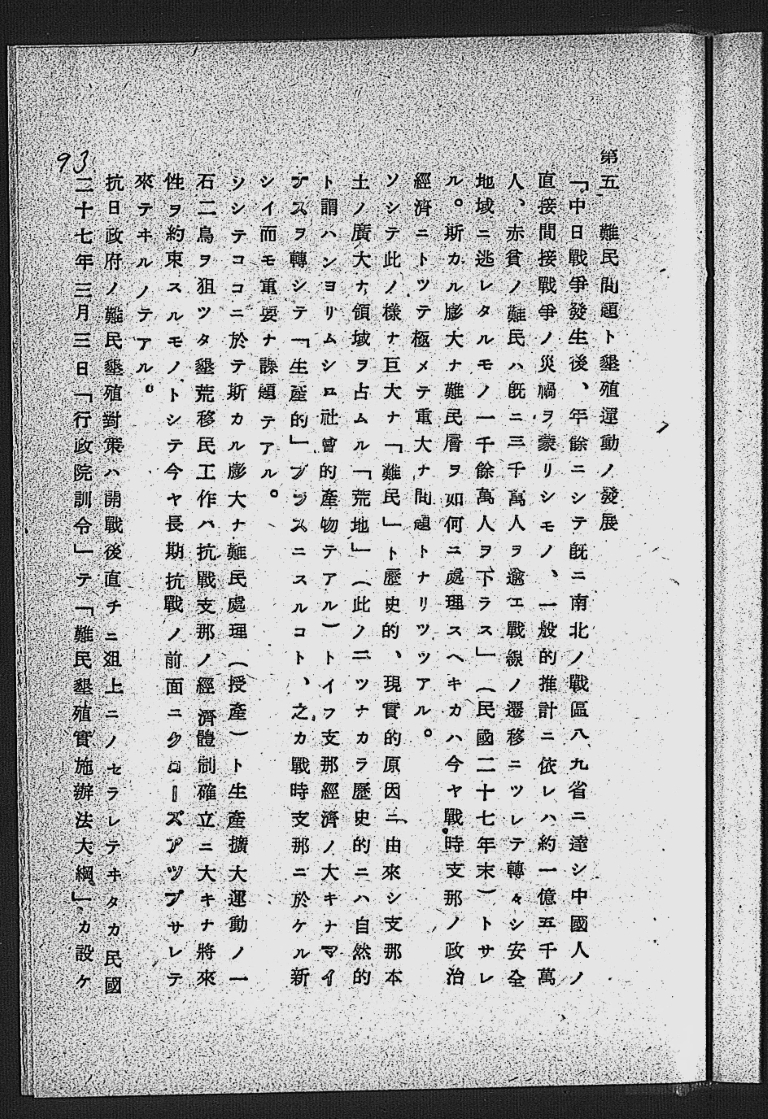 第五 難民問題ト墾殖運動ノ發展
「中日戰爭發生後、年餘ニシテ既ニ南北ノ戰區八九省ニ達シ中國人ノ
直接間接戰爭ノ災禍ヲ蒙リシモノ、一般的推計ニ依レハ約一億五千萬
人、赤貧ノ難民ハ既ニ三千萬人ヲ逾エ戰線ノ遷移ニツレテ轉々シ安全
地域ニ逃レタルモノ一千餘萬人ヲ下ラス」(民國二十七年末)トサレ
ル。斯カル膨大ナ難民層ヲ如何ニ處理スヘキカハ今ヤ戰時支那ノ政治
經濟ニトツテ極メテ重大ナ問題トナリツツアル。
ソシテ此ノ樣ナ巨大ナ「難民」ト歷史的、現實的原因ニ由來シ支那本
土ノ廣大ナ領域ヲ占ムル「荒地」(此ノ二ツナカラ歷史的ニハ自然的
ト謂ハンヨリムシロ社會的產物テアル)トイフ支那經濟ノ大キナマイ
ナスヲ轉シテ「生產的」プラスニスルコト、之カ戰時支那ニ於ケル新
シイ而モ重要ナ課題テアル。
ソシテココニ於テ斯カル膨大ナ難民處理(授產)ト生產擴大運動ノ一
石二鳥ヲ狙ツタ墾荒移民工作ハ抗戰支那ノ經濟體制確立ニ大キナ將來
性ヲ約束スルモノトシテ今ヤ長期抗戰ノ前面ニクローズアツプサレテ
來テヰルノテアル。
抗日政府ノ難民墾殖對策ハ開戰後直チニ俎上ニノセラレテヰタカ民國
二十七年三月三日「行政院訓令」テ「難民墾殖實施辦法大綱」カ設ケ
93